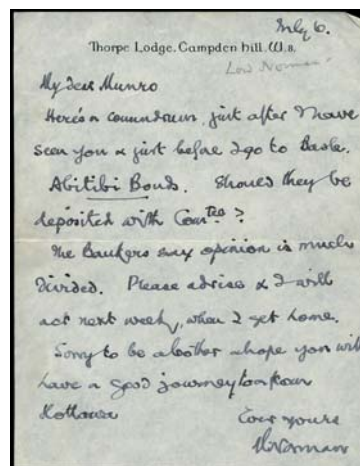 July 6.
Thorpe Lodge. Campden hill. W.8.
Lord Norman
My dear Munro
Here's a conundrum, just after I have
seen you & just before I go to Basle.
Abitibi Bonds. Should they be
deposited with Comtee?
The Bankers say opinion is much
divided. Please advise & I will
act next week, when I get home.
Sorry to be a bother & hope you will
have a good journey to & from
Ottawa
Ever yours
MNorman